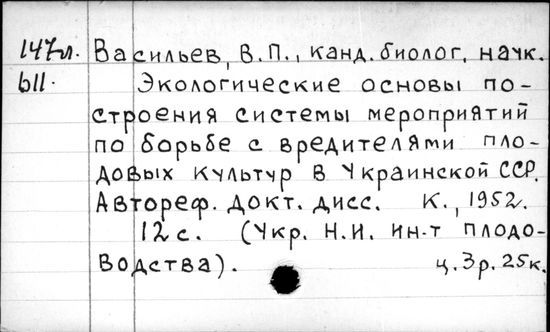 147л. Васильев, В.П., канд. биолог, начк.
611. Экологические основы по-
строения системы мероприятий
по борьбе с вредителями пло-
довых культур в Украинской ССР.
Автореф. докт. дисс. К., 1952.
12 с. (Укр. Н.И. ин-т плодо-
водства). ц. 3р. 25к.